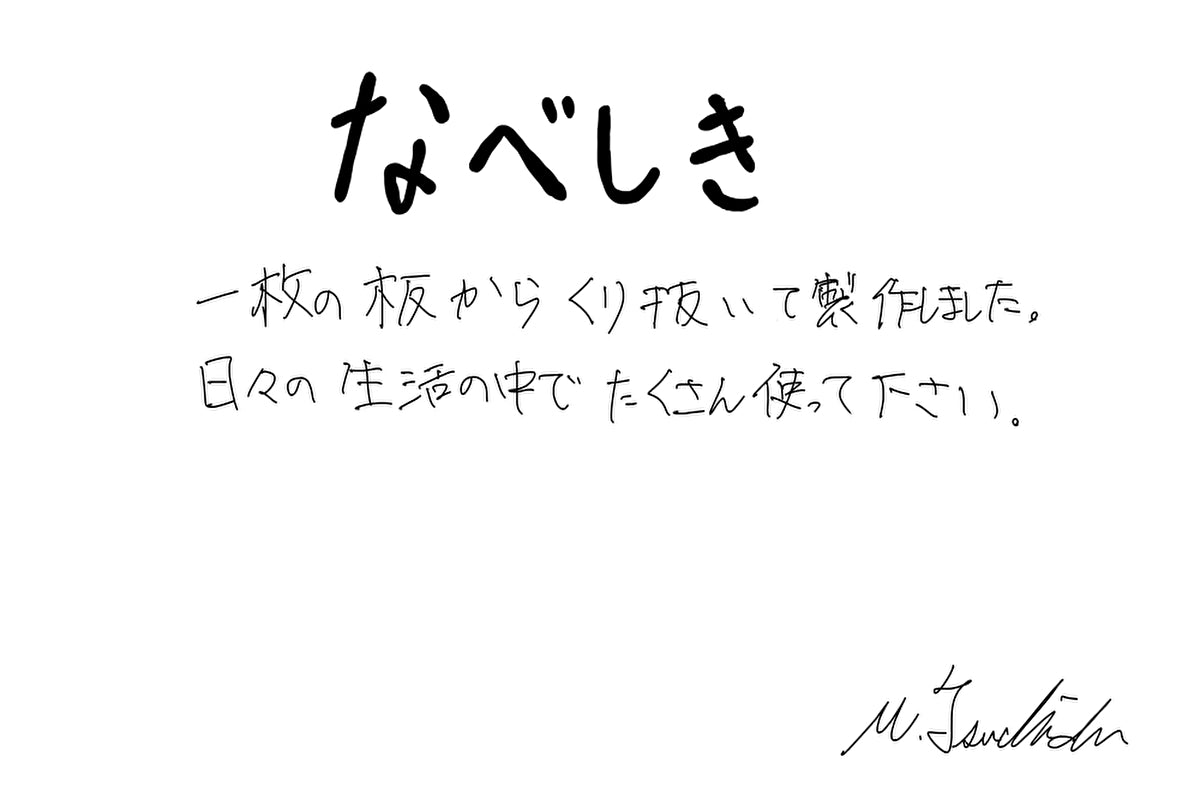 なべしき
一枚の板からくり抜いて製作しました。
日々の生活の中でたくさん使って下さい。